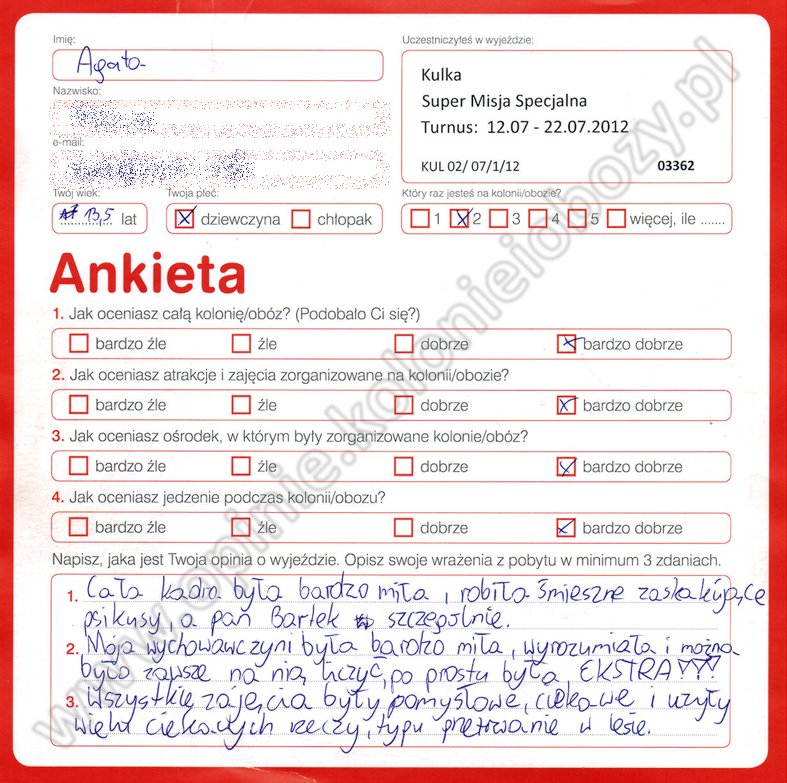 Imię:
Agata
Uczestniczyłeś w wyjeździe:
Kulka
Super Misja Specjalna
Turnus: 12.07 - 22.07.2012
KUL 02/ 07/1/12 03362
Nazwisko:
e-mail:
Twój wiek:
13,5 lat
Twoja płeć:
dziewczyna chłopak
Który raz jesteś na kolonii/obozie?
1 2 3 4 5 więcej, ile .......
Ankieta
1. Jak oceniasz całą kolonię/obóz? (Podobało Ci się?)
bardzo źle źle dobrze bardzo dobrze
2. Jak oceniasz atrakcje i zajęcia zorganizowane na kolonii/obozie?
bardzo źle źle dobrze bardzo dobrze
3. Jak oceniasz ośrodek, w którym były zorganizowane kolonie/obóz?
bardzo źle źle dobrze bardzo dobrze
4. Jak oceniasz jedzenie podczas kolonii/obozu?
bardzo źle źle dobrze bardzo dobrze
Napisz, jaka jest Twoja opinia o wyjeździe. Opisz swoje wrażenia z pobytu w minimum 3 zdaniach.
1. Cała kadra była bardzo miła, robiła śmieszne zaskakujące
psikusy, a pan Bartek szczególnie.
2. Moja wychowawczyni była bardzo miła, wyrozumiała i można
było zawsze na nią liczyć, po prostu była EKSTRA!!!
3. Wszystkie zajęcia były pomysłowe, ciekawe i uczyły
wielu ciekawych rzeczy, typu przetrwanie w lesie.
www.opinie.kolonieiobozy.pl